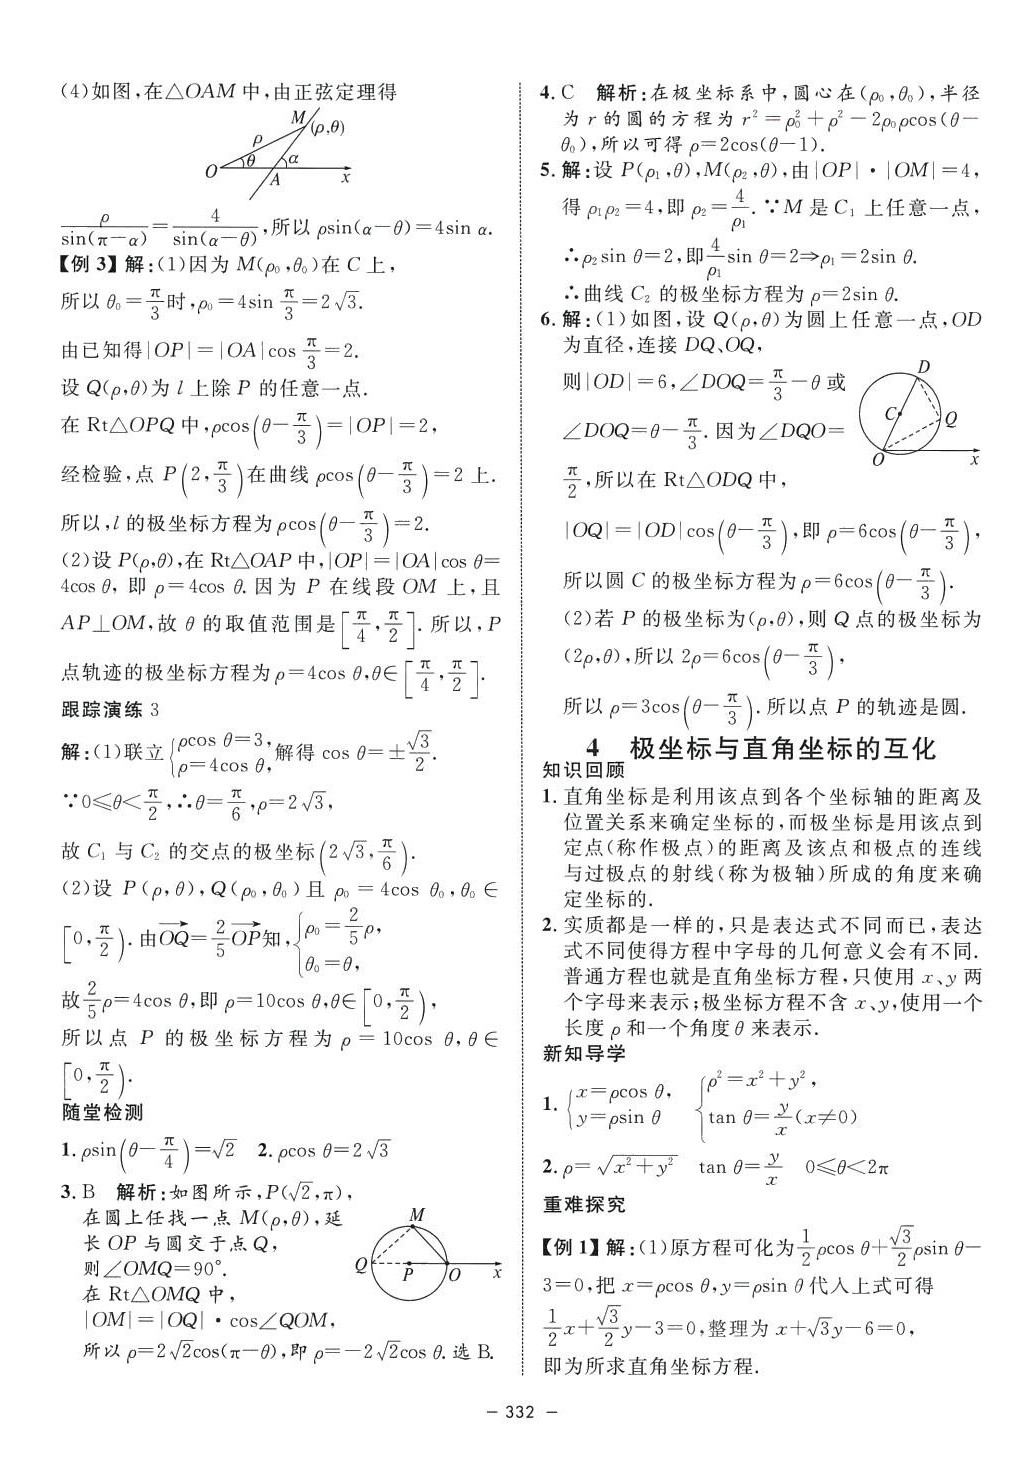 (4)如图,在△OAM中,由正弦定理得
M (ρ,θ)
ρ
O θ α
A x
ρ/sin(π−α)=4/sin(α−θ),所以 ρsin(α−θ)=4sin α.
【例3】解:(1)因为 M(ρ₀,θ₀)在 C 上,
所以 θ₀=π/3时,ρ₀=4sin π/3=2√3.
由已知得|OP|=|OA|cos π/3=2.
设 Q(ρ,θ)为 l 上除 P 的任意一点.
在 Rt△OPQ 中,ρcos(θ−π/3)=|OP|=2,
经检验,点 P(2,π/3)在曲线 ρcos(θ−π/3)=2 上.
所以,l 的极坐标方程为 ρcos(θ−π/3)=2.
(2)设 P(ρ,θ),在 Rt△OAP 中,|OP|=|OA|cos θ=
4cos θ, 即 ρ=4cos θ.因为 P 在线段 OM 上,且
AP⊥OM,故 θ 的取值范围是[π/4,π/2].所以,P
点轨迹的极坐标方程为 ρ=4cos θ,θ∈[π/4,π/2].
跟踪演练 3
解:(1)联立{ρcos θ=3, ρ=4cos θ,解得 cos θ=±√3/2.
∵0≤θ<π/2,∴θ=π/6,ρ=2√3,
故 C₁ 与 C₂ 的交点的极坐标(2√3,π/6).
(2)设 P(ρ,θ),Q(ρ₀,θ₀)且 ρ₀=4cos θ₀,θ₀∈
[0,π/2).由OQ→=2/5 OP→知,{ρ₀=2/5ρ, θ₀=θ,
故2/5ρ=4cos θ,即 ρ=10cos θ,θ∈[0,π/2),
所以点 P 的极坐标方程为 ρ=10cos θ,θ∈
[0,π/2).
随堂检测
1. ρsin(θ−π/4)=√2 2. ρcos θ=2√3
3. B 解析:如图所示,P(√2,π),
在圆上任找一点 M(ρ,θ),延
长 OP 与圆交于点 Q,
则∠OMQ=90°.
在 Rt△OMQ 中,
|OM|=|OQ|·cos∠QOM,
所以 ρ=2√2cos(π−θ),即 ρ=−2√2cos θ.选 B.
M
Q P O x
4. C 解析:在极坐标系中,圆心在(ρ₀,θ₀),半径
为 r 的圆的方程为 r²=ρ₀²+ρ²−2ρ₀ρcos(θ−
θ₀),所以可得 ρ=2cos(θ−1).
5. 解:设 P(ρ₁,θ),M(ρ₂,θ),由|OP|·|OM|=4,
得 ρ₁ρ₂=4,即 ρ₂=4/ρ₁.∵M 是 C₁ 上任意一点,
∴ρ₂sin θ=2,即4/ρ₁ sin θ=2⇒ρ₁=2sin θ.
∴曲线 C₂ 的极坐标方程为 ρ=2sin θ.
6. 解:(1)如图,设 Q(ρ,θ)为圆上任意一点,OD
为直径,连接 DQ、OQ,
则|OD|=6,∠DOQ=π/3−θ或
∠DOQ=θ−π/3.因为∠DQO=
π/2,所以在 Rt△ODQ 中,
D
C
Q
O x
|OQ|=|OD|cos(θ−π/3),即 ρ=6cos(θ−π/3),
所以圆 C 的极坐标方程为 ρ=6cos(θ−π/3).
(2)若 P 的极坐标为(ρ,θ),则 Q 点的极坐标为
(2ρ,θ),所以 2ρ=6cos(θ−π/3),
所以 ρ=3cos(θ−π/3).所以点 P 的轨迹是圆.
4 极坐标与直角坐标的互化
知识回顾
1. 直角坐标是利用该点到各个坐标轴的距离及
位置关系来确定坐标的,而极坐标是用该点到
定点(称作极点)的距离及该点和极点的连线
与过极点的射线(称为极轴)所成的角度来确
定坐标的.
2. 实质都是一样的,只是表达式不同而已,表达
式不同使得方程中字母的几何意义会有不同.
普通方程也就是直角坐标方程,只使用 x、y 两
个字母来表示;极坐标方程不含 x、y,使用一个
长度 ρ 和一个角度 θ 来表示.
新知导学
1. {x=ρcos θ, y=ρsin θ {ρ²=x²+y², tan θ=y/x(x≠0)
2. ρ=√(x²+y²) tan θ=y/x 0≤θ<2π
重难探究
【例1】解:(1)原方程可化为1/2ρcos θ+√3/2ρsin θ−
3=0,把 x=ρcos θ,y=ρsin θ代入上式可得
1/2x+√3/2y−3=0,整理为 x+√3y−6=0,
即为所求直角坐标方程.
– 332 –